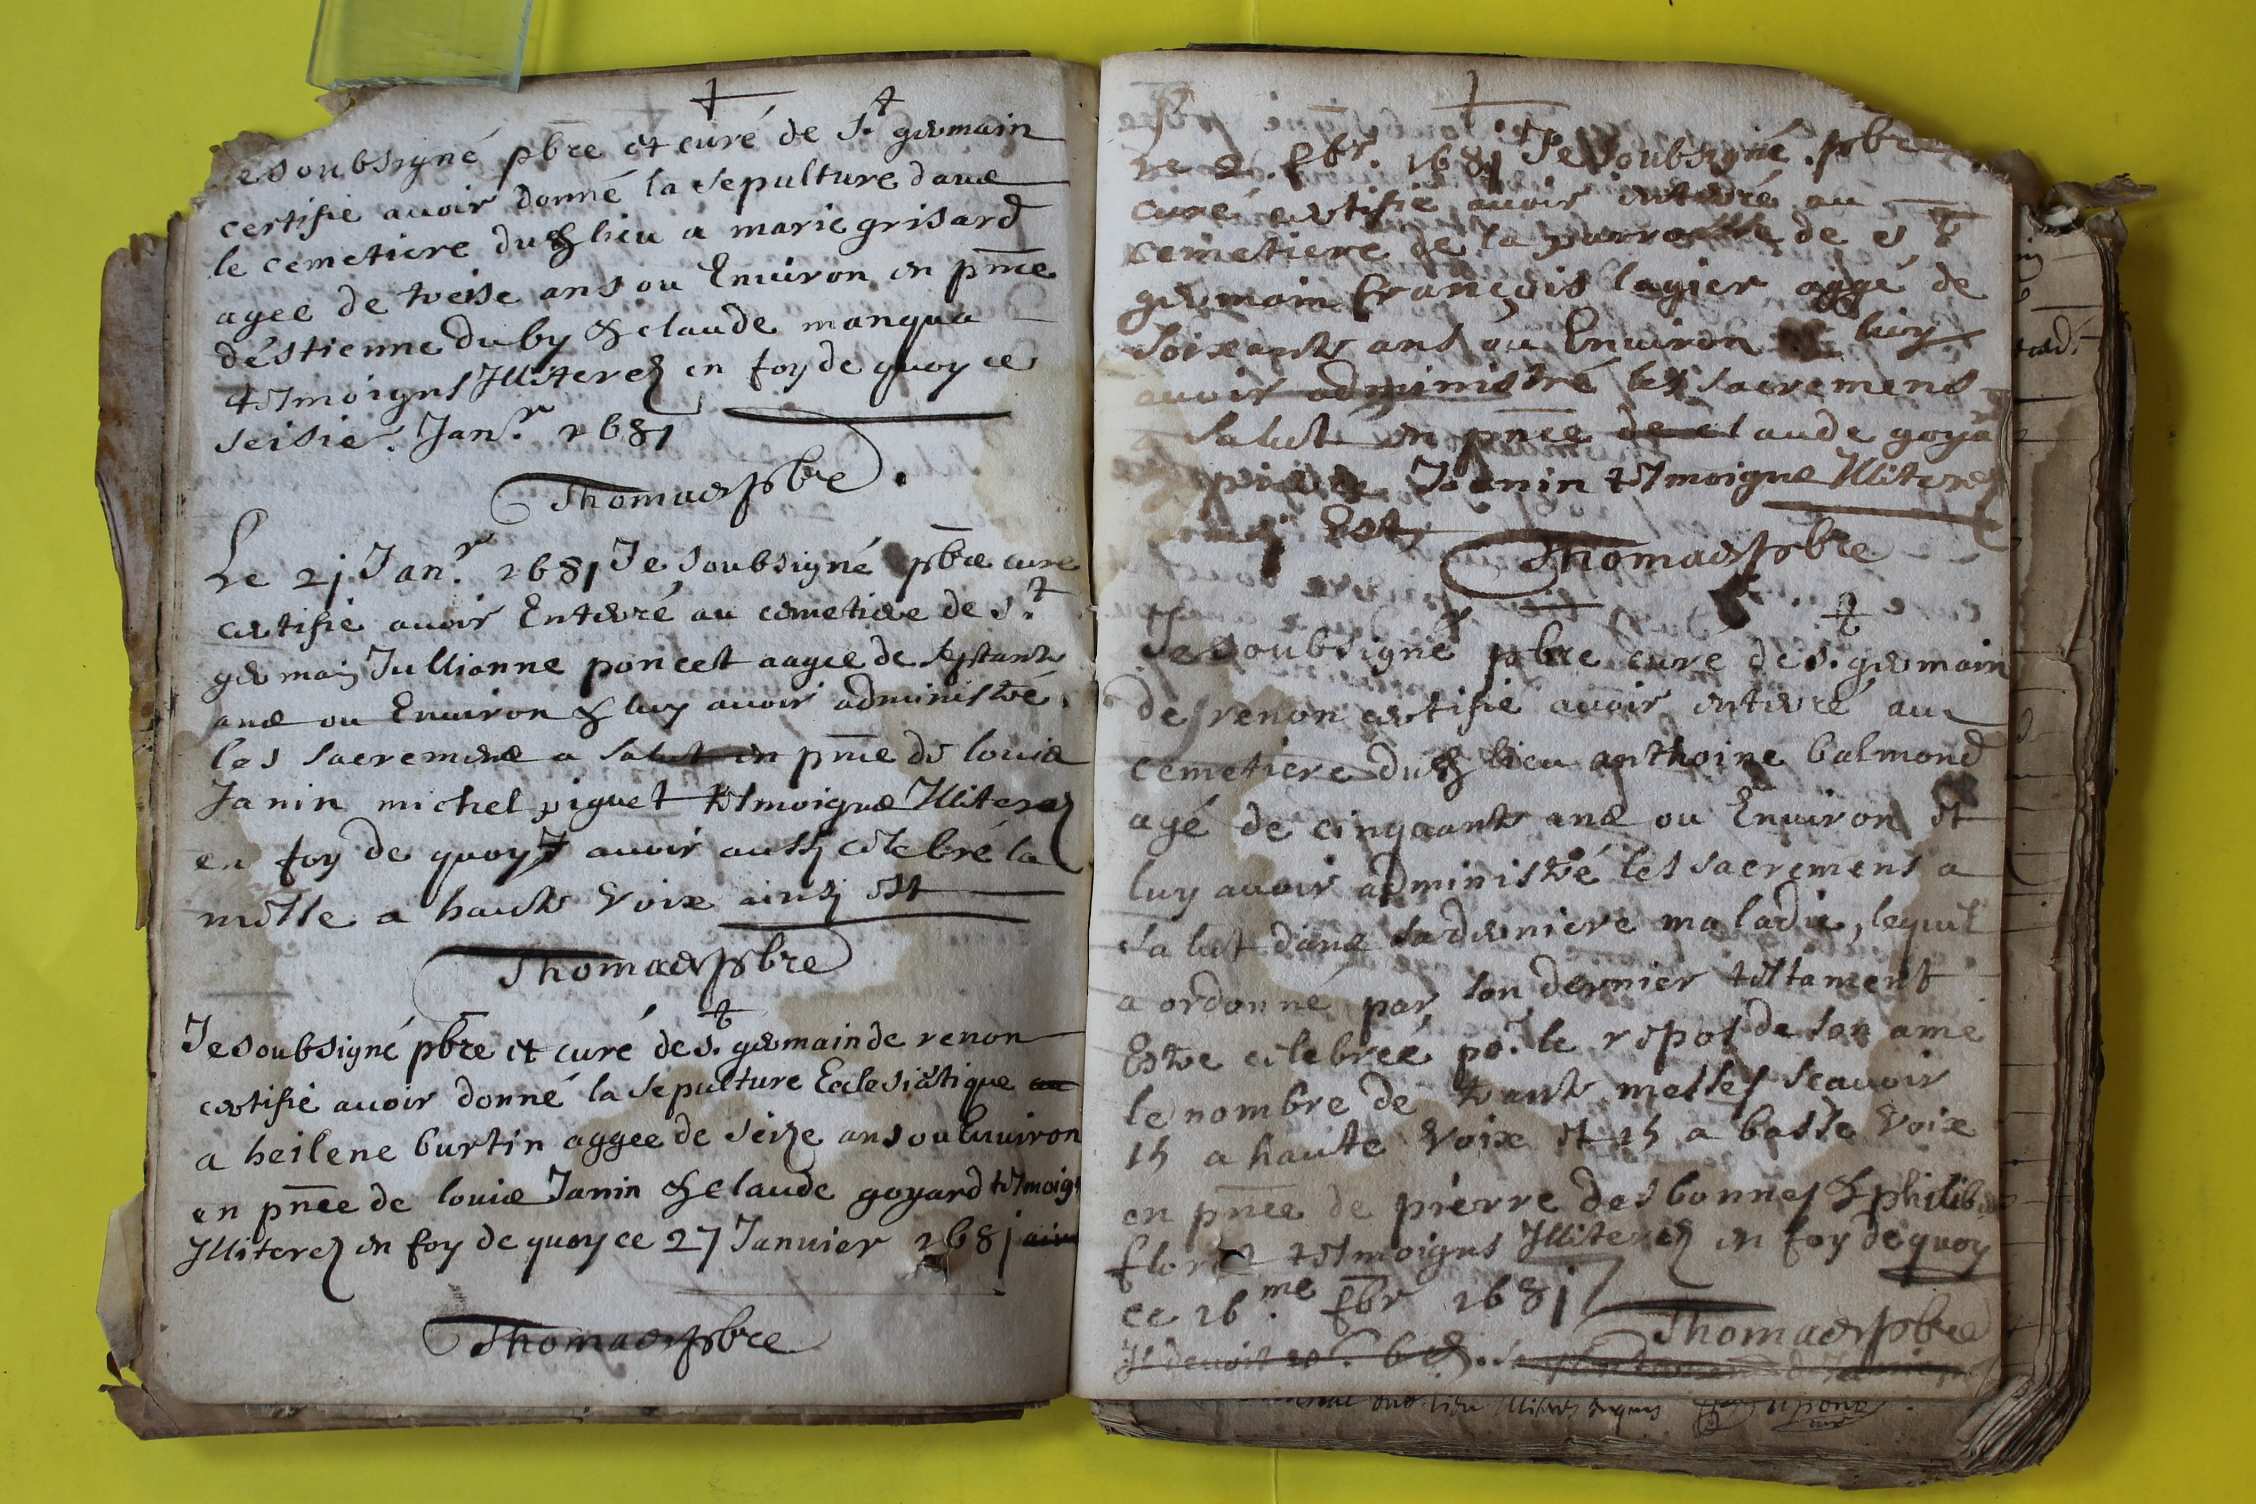 esoubsigné pbre et curé de St germain
certifie avoir donné la sepulture dans
le cemetiere dud lieu a marie grisard
agee de treise ans ou Environ en pnce
déstienne duby & claude manqua
tesmoigns Illiterez en foy de quoy ce
seisie. Janr. 1681
Thomas pbre
Le 21 Janr. 1681 Je soubsigné pbre curé
certifie avoir Enterré au cemetiere de St
germain Jullianne poncet aagee de septante
ans ou Environ & luy avoir administré
les sacremens a salut en pnce de louis
Janin michel piguet tesmoigns Illiterez
en foy de quoy & avoir aussy celebré la
messe a haute voix ainsy est
Thomas pbre
Je soubsigné pbre et curé de St germain de renon
certifie avoir donné la sepulture Ecclesiastique
a heilene burtin aggee de seize ans ou Environ
en pnce de louis Janin & claude goyard tesmoigs
Illiterez en foy de quoy ce 27 Janvier 1681
Thomas pbre
ce 2. fbr. 1681 Je soubsigné pbre
curé certifie avoir enterré au
cemetiere de la parroesse de St
germain francois lagier aggé de
soixante ans ou Environ & luy
avoir administré les sacremens
a salut en pnce de claude goyard
Janin tesmoigns Illiterez
Est
Thomas pbre
Je soubsigné pbre curé de St germain
de renon certifie avoir enterré au
cemetiere dud lieu anthoine balmond
agé de cinquante ans ou Environ et
luy avoir administré les sacremens a
salut dans sa derniere maladie, lequel
a ordonné par son dernier testament
Estre celebreé pr. le repos de son ame
le nombre de trante messes scavoir
15 a haute voix et 15 a basse voix
en pnce de pierre desbonnes & philib
floret tesmoigns Illiterez en foy de quoy
ce 16.me fbr 1681
Thomas pbre